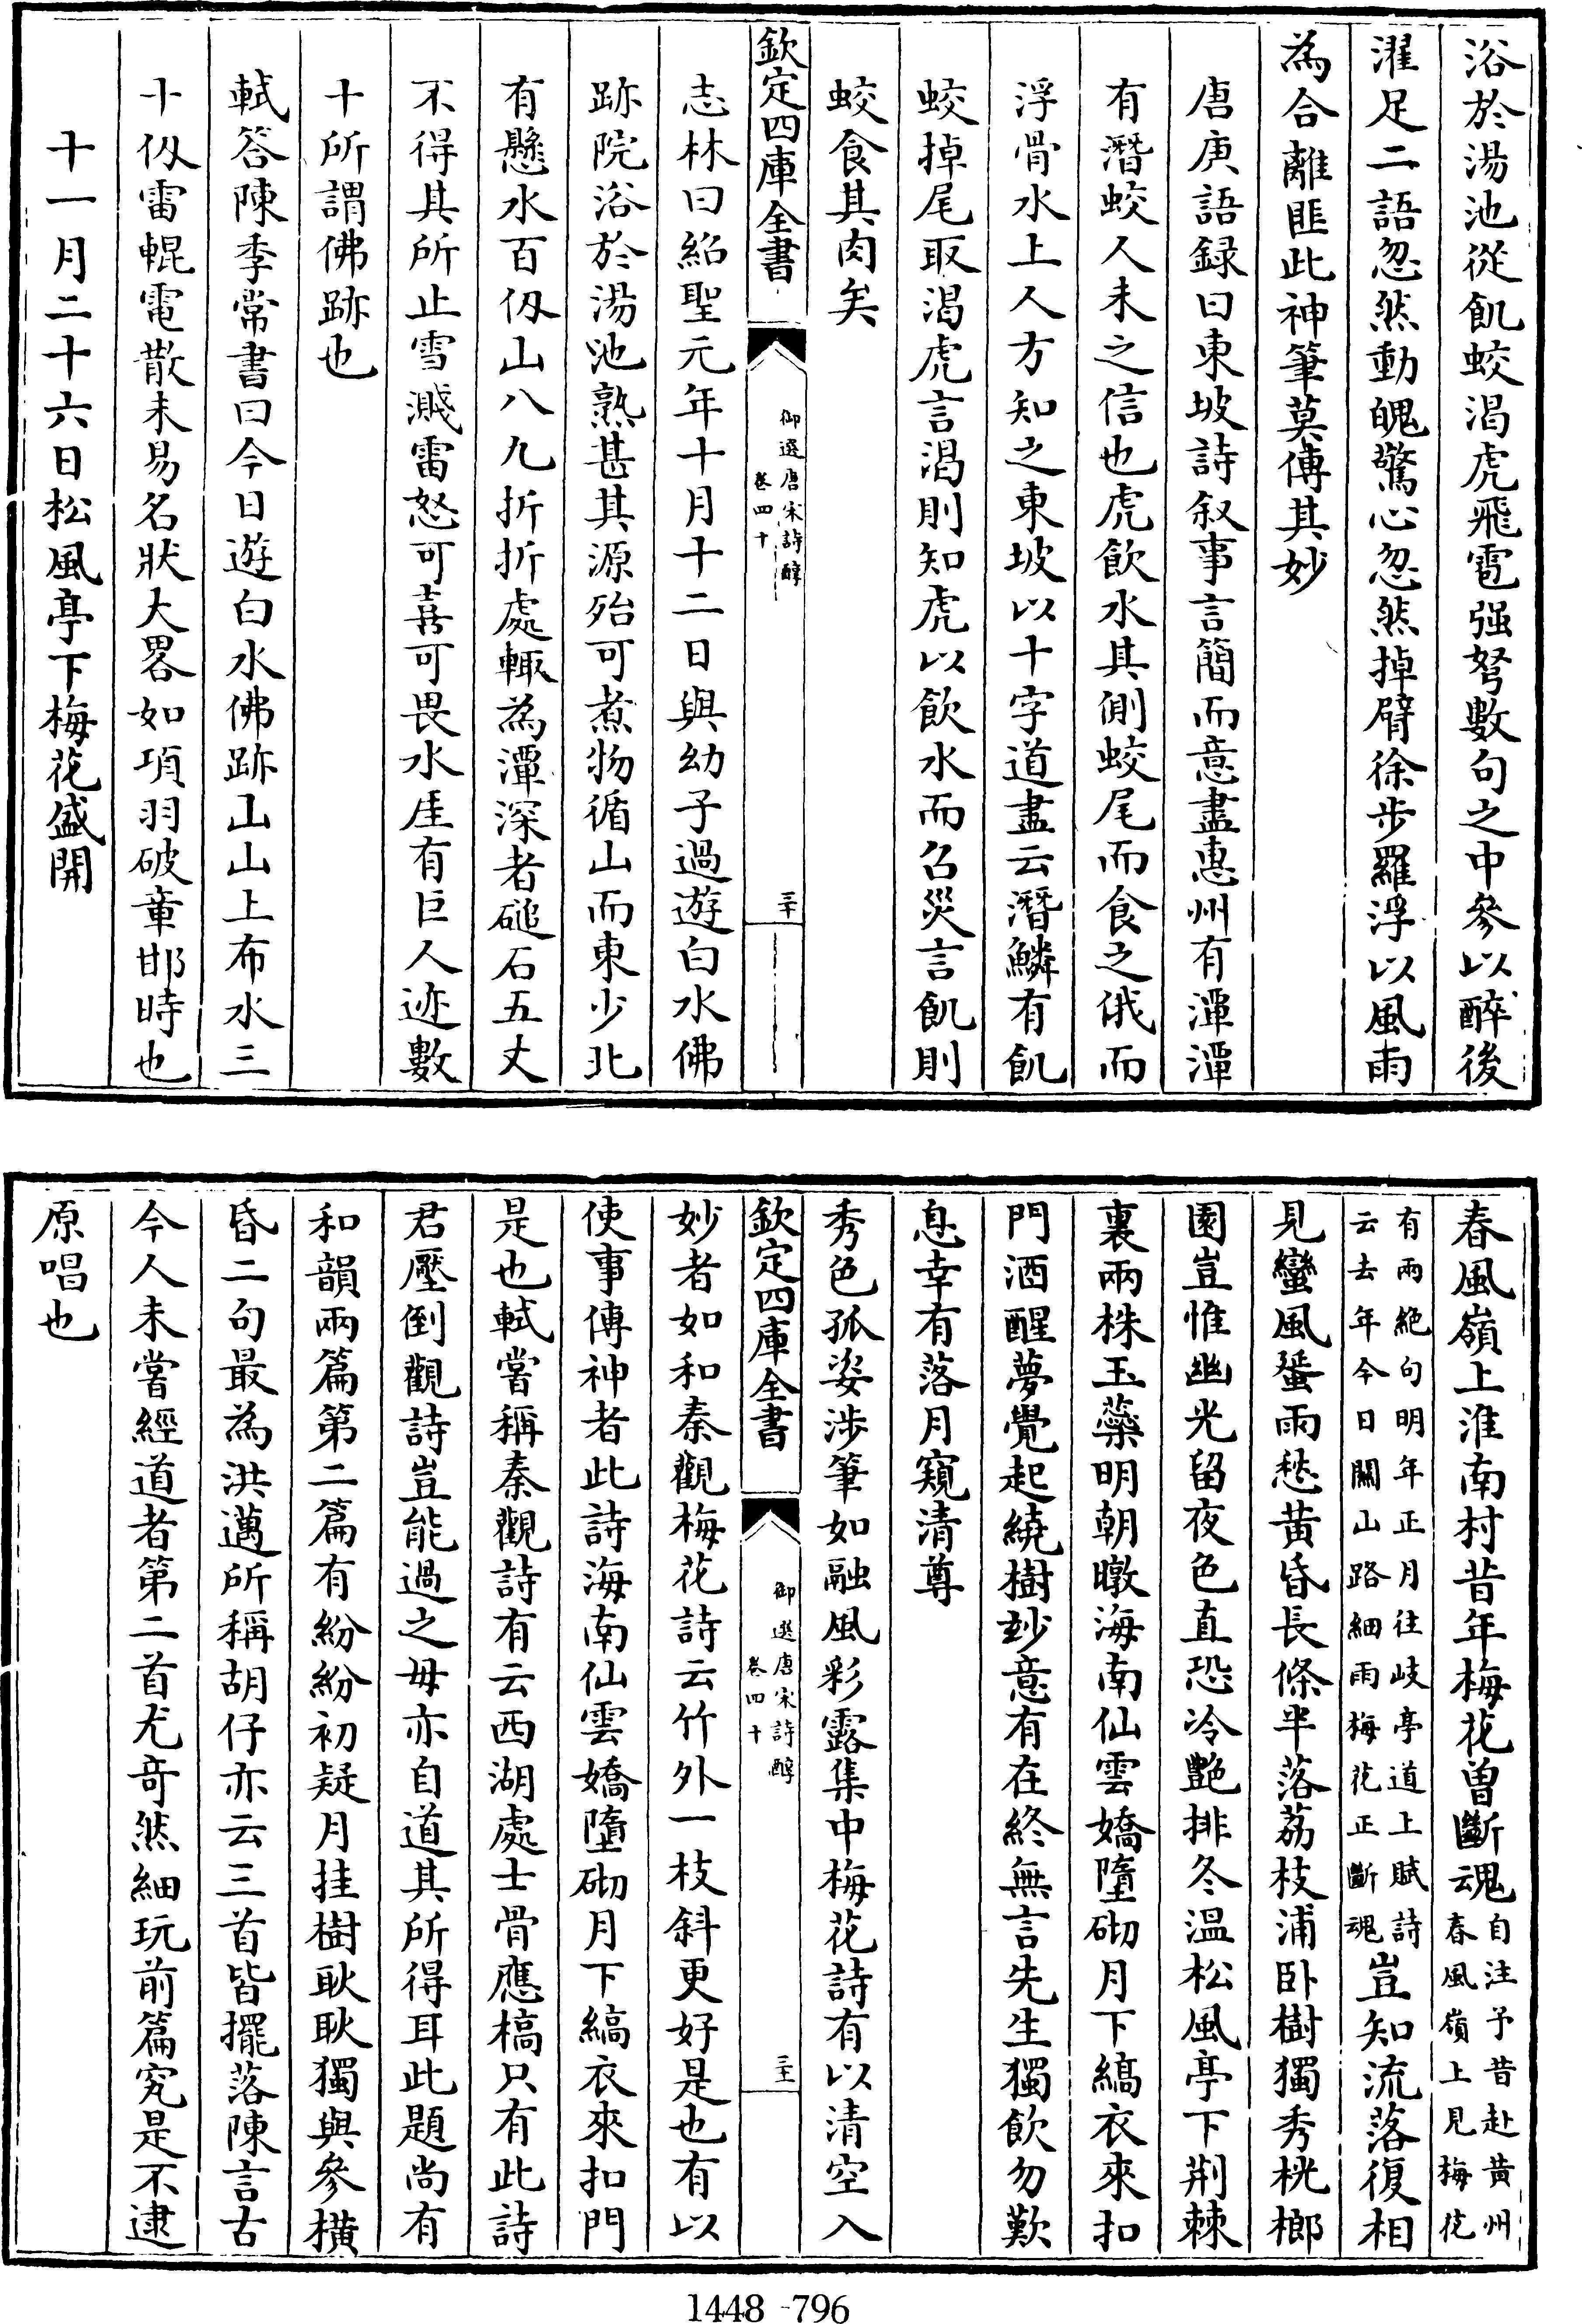 浴於湯池從飢蛟渴虎飛雹强弩數句之中參以醉後
濯足二語忽然動魄驚心忽然掉臂徐步羅浮以風雨
為合離匪此神筆莫傳其妙
唐庚語録曰東坡詩叙事言簡而意盡惠州有潭潭
有潛蛟人未之信也虎飲水其側蛟尾而食之俄而
浮骨水上人方知之東坡以十字道盡云潛鱗有飢
蛟掉尾取渴虎言渴則知虎以飲水而召災言飢則
蛟食其肉矣
欽定四庫全書
御選唐宋詩醇
卷四十
三十
志林曰紹聖元年十月十二日與幼子過遊白水佛
跡院浴於湯池熟甚其源殆可煮物循山而東少北
有懸水百仭山八九折折處輙為潭深者磓石五丈
不得其所止雪濺雷怒可喜可畏水厓有巨人迹數
十所謂佛跡也
軾答陳季常書曰今日遊白水佛跡山山上布水三
十仭雷輥電散未易名狀大畧如項羽破章邯時也
十一月二十六日松風亭下梅花盛開
春風嶺上淮南村昔年梅花曾斷魂自注予昔赴黄州春風嶺上見梅花
有兩絶句明年正月往岐亭道上賦詩云去年今日關山路細雨梅花正斷魂豈知流落復相
見蠻風蜑雨愁黄昏長條半落荔枝浦卧樹獨秀桄榔
園豈惟幽光留夜色直恐冷艷排冬温松風亭下荆棘
裏兩株玉蘂明朝暾海南仙雲嬌墮砌月下縞衣來扣
門酒醒夢覺起繞樹玅意有在終無言先生獨飲勿歎
息幸有落月窺清尊
秀色孤姿涉筆如融風彩露集中梅花詩有以清空入
欽定四庫全書
御選唐宋詩醇
卷四十
三十一
妙者如和秦觀梅花詩云竹外一枝斜更好是也有以
使事傳神者此詩海南仙雲嬌墮砌月下縞衣來扣門
是也軾嘗稱秦觀詩有云西湖處士骨應槁只有此詩
君壓倒觀詩豈能過之毋亦自道其所得耳此題尚有
和韻兩篇第二篇有紛紛初疑月挂樹耿耿獨與參横
昏二句最為洪邁所稱胡仔亦云三首皆擺落陳言古
今人未嘗經道者第二首尤奇然細玩前篇究是不逮
原唱也
1448-796